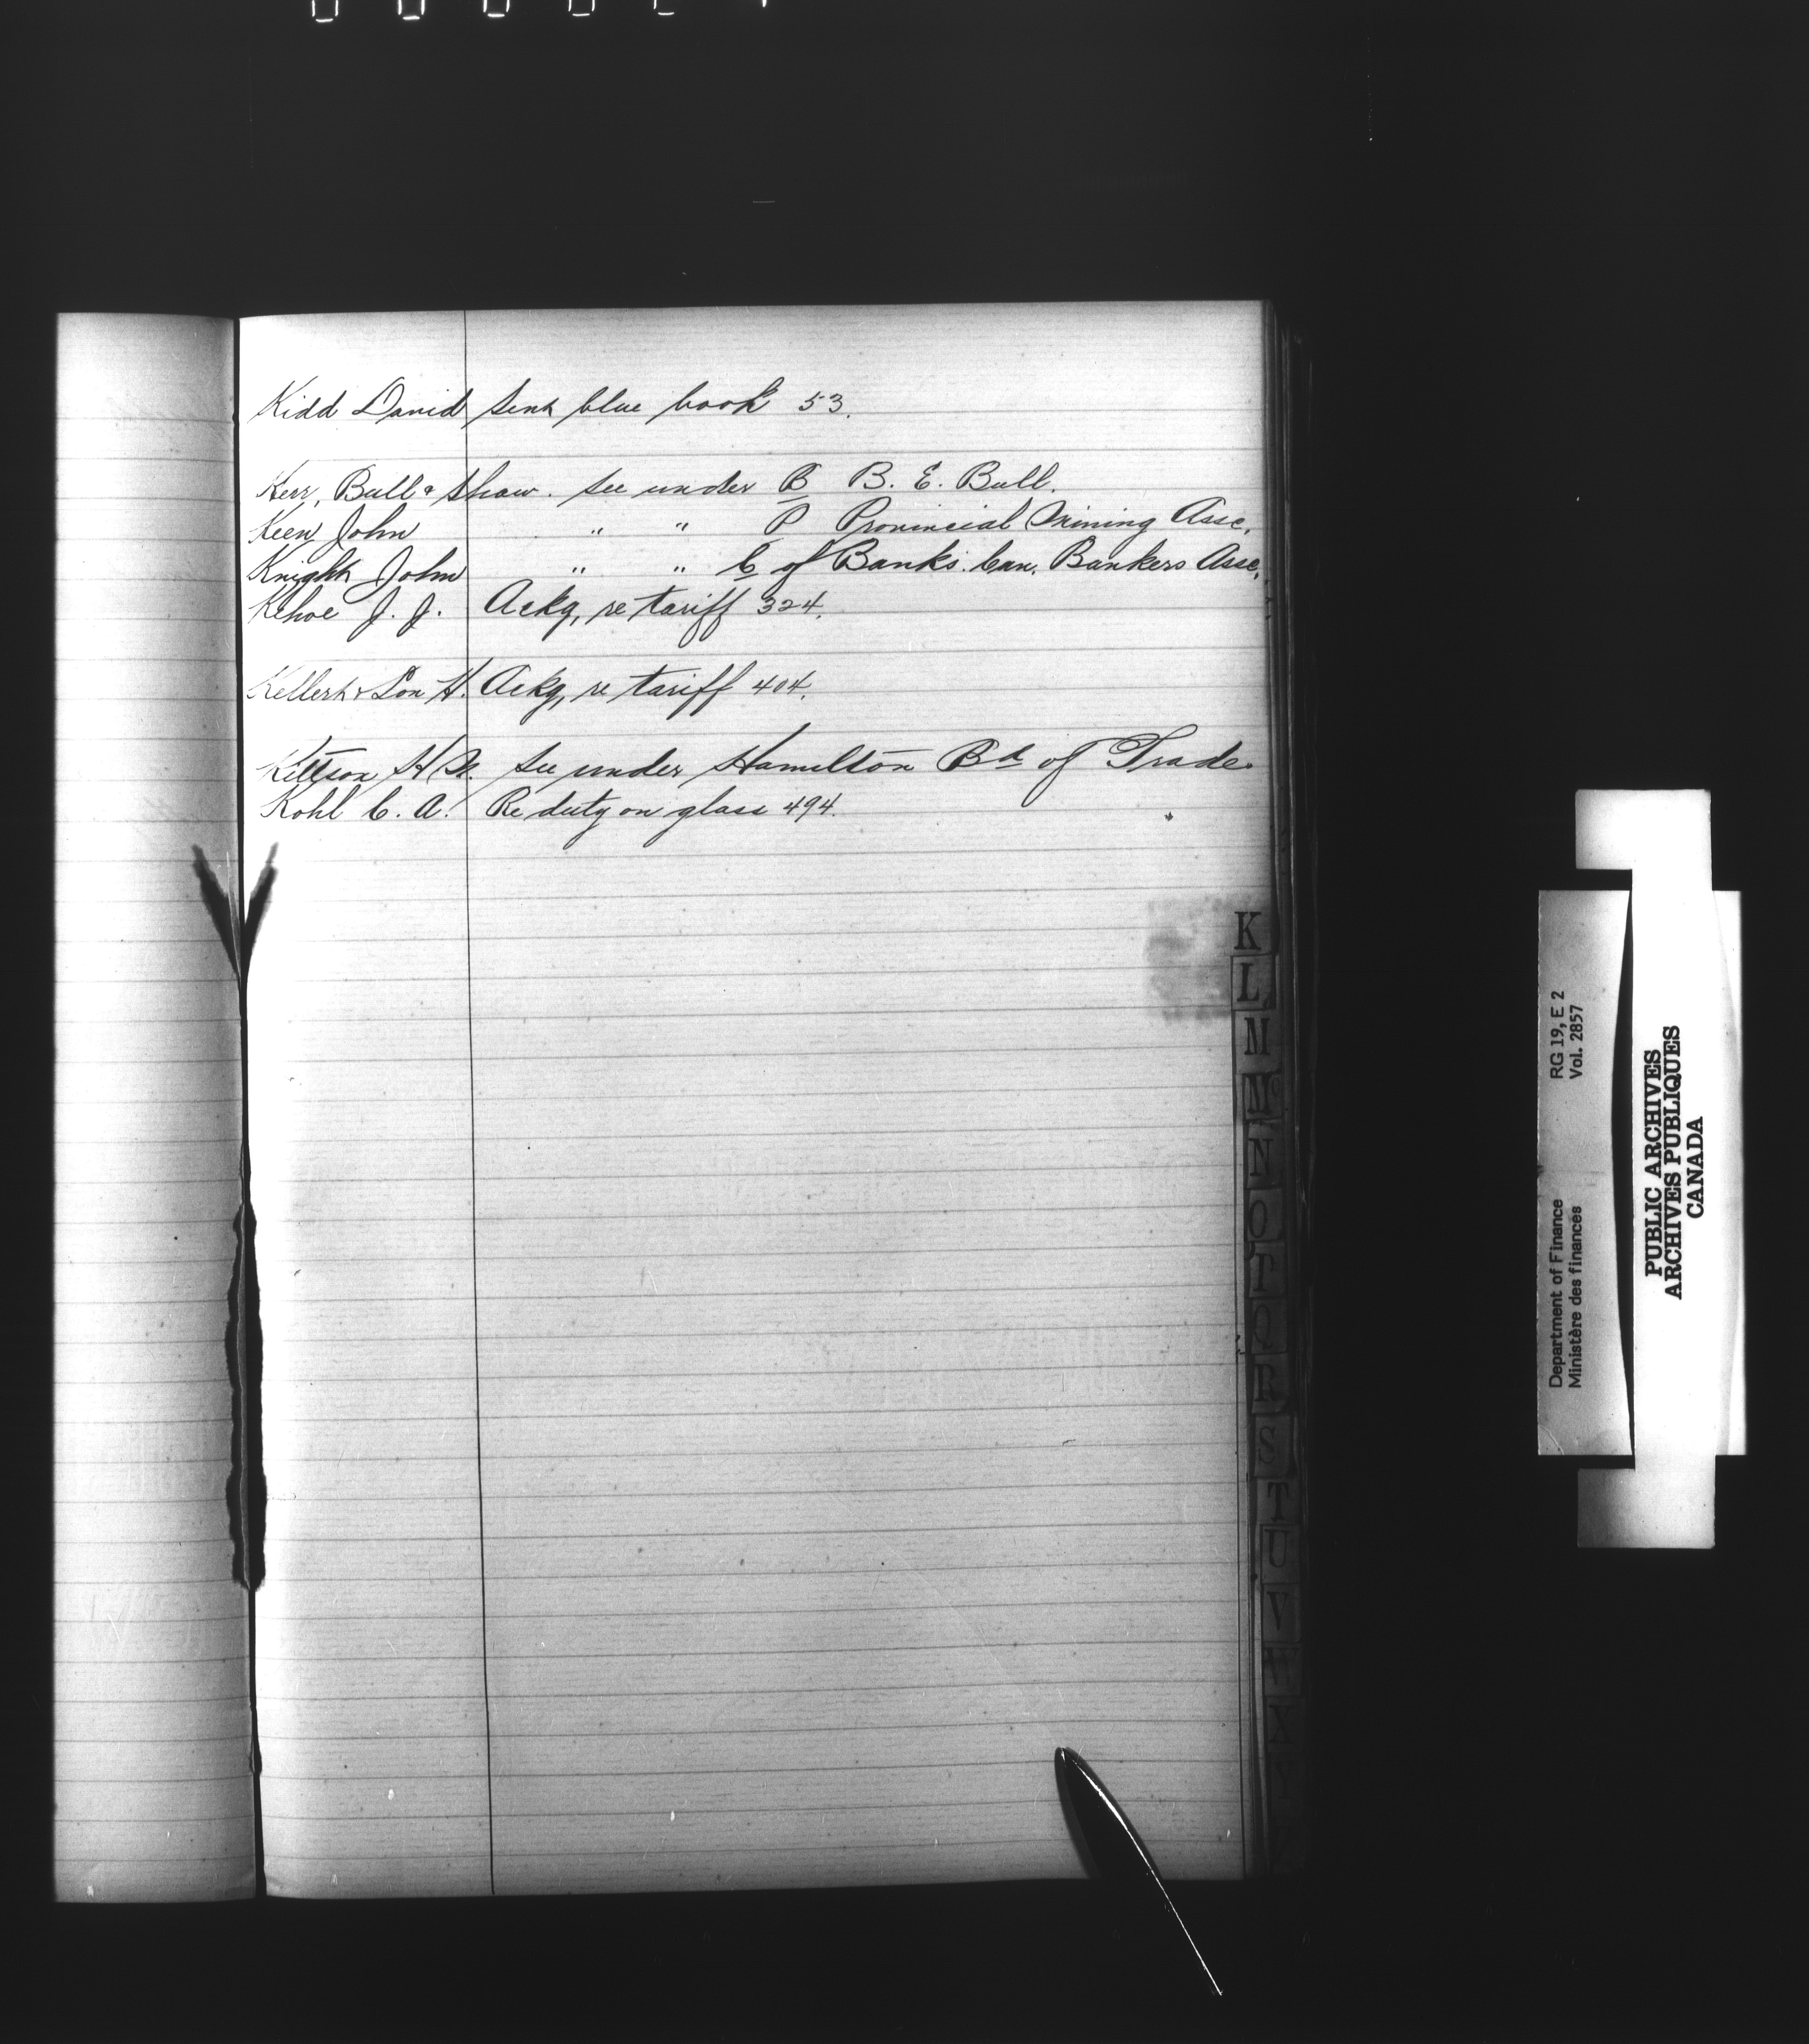 Kidd David sent blue book 53.
Kerr, Bull & Shaw. See under B B. E. Bull.
Keen John " " P Provincial Mining Assc.
Knight John " " C of Banks. Can. Bankers Assc.
Kehoe J. J. Ackg, re tariff 324.
Kellert & Son H. Ackg, re tariff 404.
Kittson H. N. See under Hamilton Bd of Trade
Kohl C. A. Re duty on glass 494.
K
L
M
Mc
N
O
P
Q
R
S
T
U
V
W
X
Y
Department of Finance RG 19, E 2
Ministère des finances Vol. 2857
PUBLIC ARCHIVES
ARCHIVES PUBLIQUES
CANADA